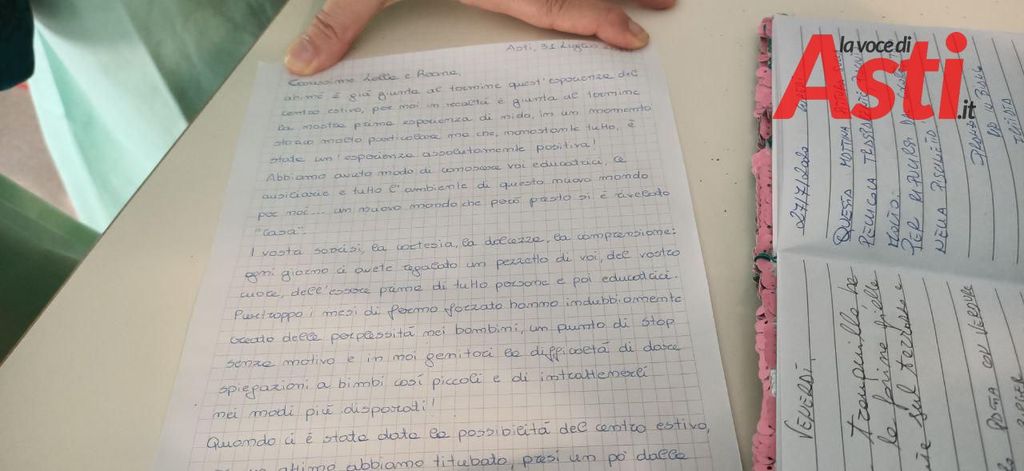 Asti, 31 Luglio
Carissime Lella e Roana,
ahimè è già giunta al termine quest'esperienza del
centro estivo, per noi in realtà è giunta al termine
la nostra prima esperienza di nido, in un momento
storico molto particolare ma che, nonostante tutto, è
stata un'esperienza assolutamente positiva!
Abbiamo avuto modo di conoscere voi educatrici, le
ausiliarie e tutto l'ambiente di questo nuovo mondo
per noi... un nuovo mondo che però presto si è rivelato
"casa".
I vostri sorrisi, la cortesia, la dolcezza, la comprensione:
ogni giorno ci avete regalato un pezzetto di voi, del vostro
cuore, dell'essere prima di tutto persone e poi educatrici.
Purtroppo i mesi di fermo forzato hanno indubbiamente
creato delle perplessità nei bambini, un punto di stop
senza motivo e in noi genitori le difficoltà di dare
spiegazioni a bimbi così piccoli e di intrattenerli
nei modi più disparati!
Quando ci è stata data la possibilità del centro estivo,
un attimo abbiamo titubato, presi un po' dalle
la voce di
Asti.it
27/7/2020
QUESTA MATTINA
PELLICOLA TRASPARENTE
PER
NELLA
VENERDÌ
tranquillo
le farine gialle
sul terrazzo e